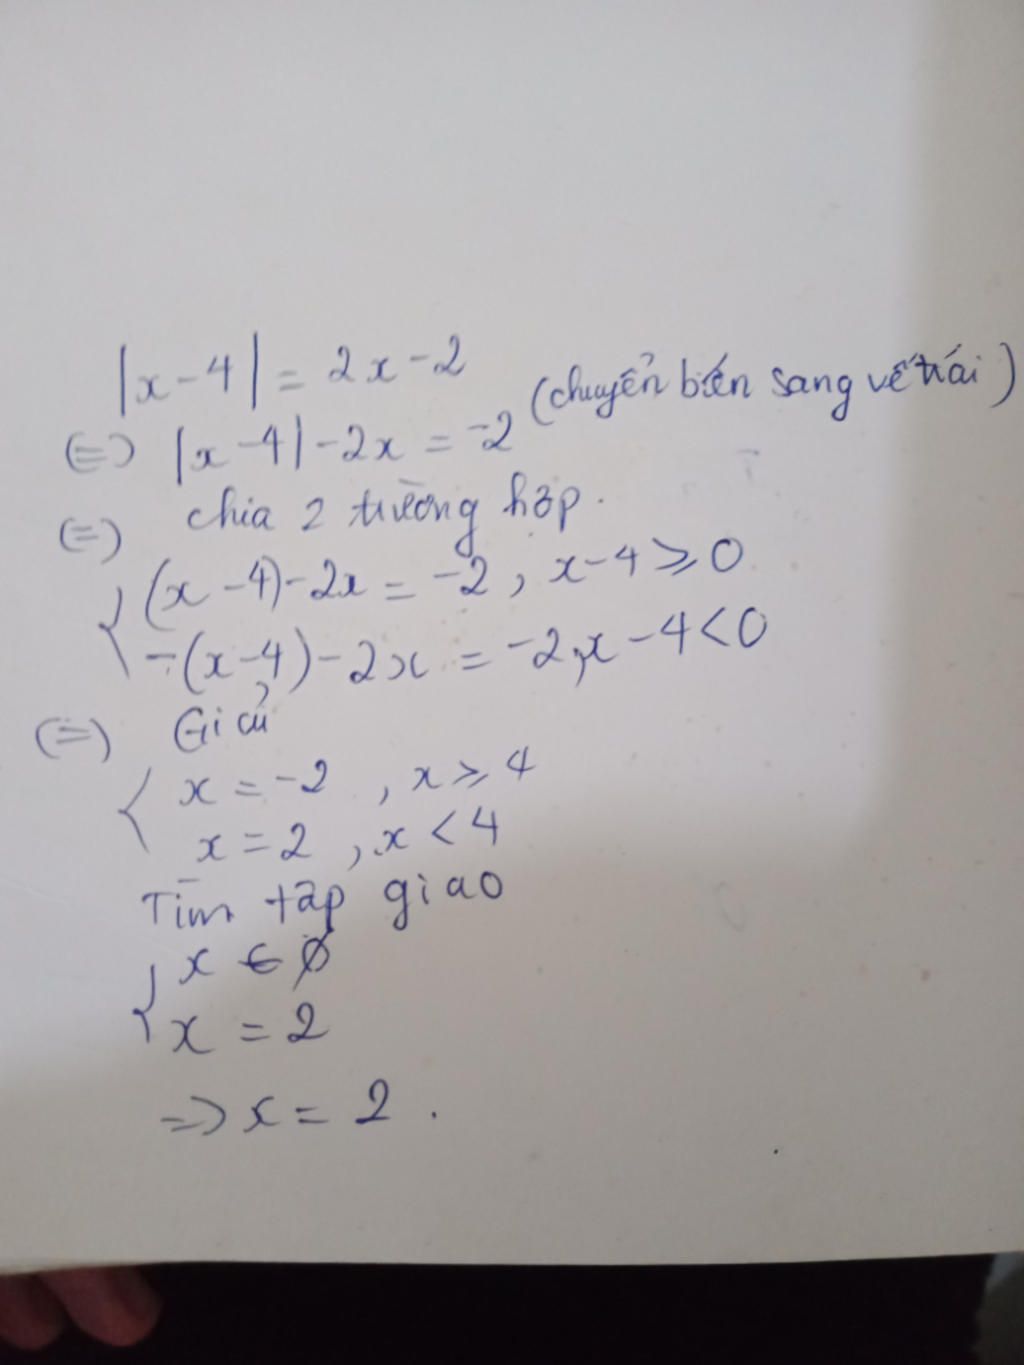 |x-4| = 2x-2
(=) |x-4|-2x = -2 (chuyển biến sang vế trái)
(=) chia 2 trường hợp.
{ (x-4)-2x = -2, x-4 ⩾ 0
-(x-4)-2x = -2, x-4 < 0
(=) Giải
{ x = -2 , x ⩾ 4
x = 2 , x < 4
Tìm tập giao
{ x ∈ ∅
x = 2
=> x = 2 .